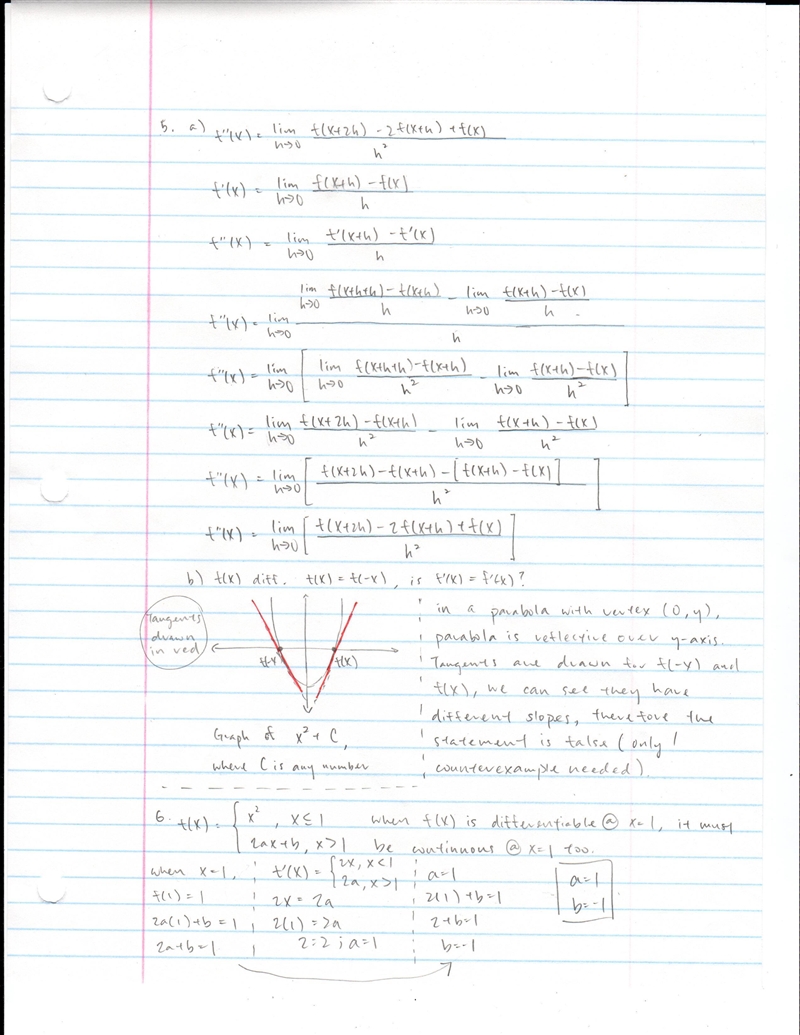 5. a) f''(x) = lim h→0 f(x+2h) - 2f(x+h) + f(x) / h²
f'(x) = lim h→0 f(x+h) - f(x) / h
f''(x) = lim h→0 f'(x+h) - f'(x) / h
f''(x) = lim h→0 lim h→0 f(x+h+h) - f(x+h) / h - lim h→0 f(x+h) - f(x) / h / h
f''(x) = lim h→0 [ lim h→0 f(x+h+h) - f(x+h) / h² - lim h→0 f(x+h) - f(x) / h² ]
f''(x) = lim h→0 f(x+2h) - f(x+h) / h² - lim h→0 f(x+h) - f(x) / h²
f''(x) = lim h→0 [ f(x+2h) - f(x+h) - [f(x+h) - f(x)] / h² ]
f''(x) = lim h→0 [ f(x+2h) - 2f(x+h) + f(x) / h² ]
b) f(x) diff. f(x) = f(-x), is f'(x) = f'(-x)?
Tangents
drawn
in red
f(-x) f(x)
Graph of x² + C,
where C is any number
in a parabola with vertex (0,y),
parabola is reflective over y-axis.
Tangents are drawn for f(-x) and
f(x), we can see they have
different slopes, therefore the
statement is false (only 1
counterexample needed).
6. f(x) = { x², x ≤ 1 when f(x) is differentiable @ x=1, it must
2ax+b, x > 1 be continuous @ x=1 too.
when x=1,
f(1) = 1
2a(1)+b = 1
2a+b = 1
f'(x) = { 2x, x<1
2a, x>1
2x = 2a
2(1) = 2a
2=2; a=1
a=1
2(1)+b=1
2+b=1
b=-1
a=1
b=-1